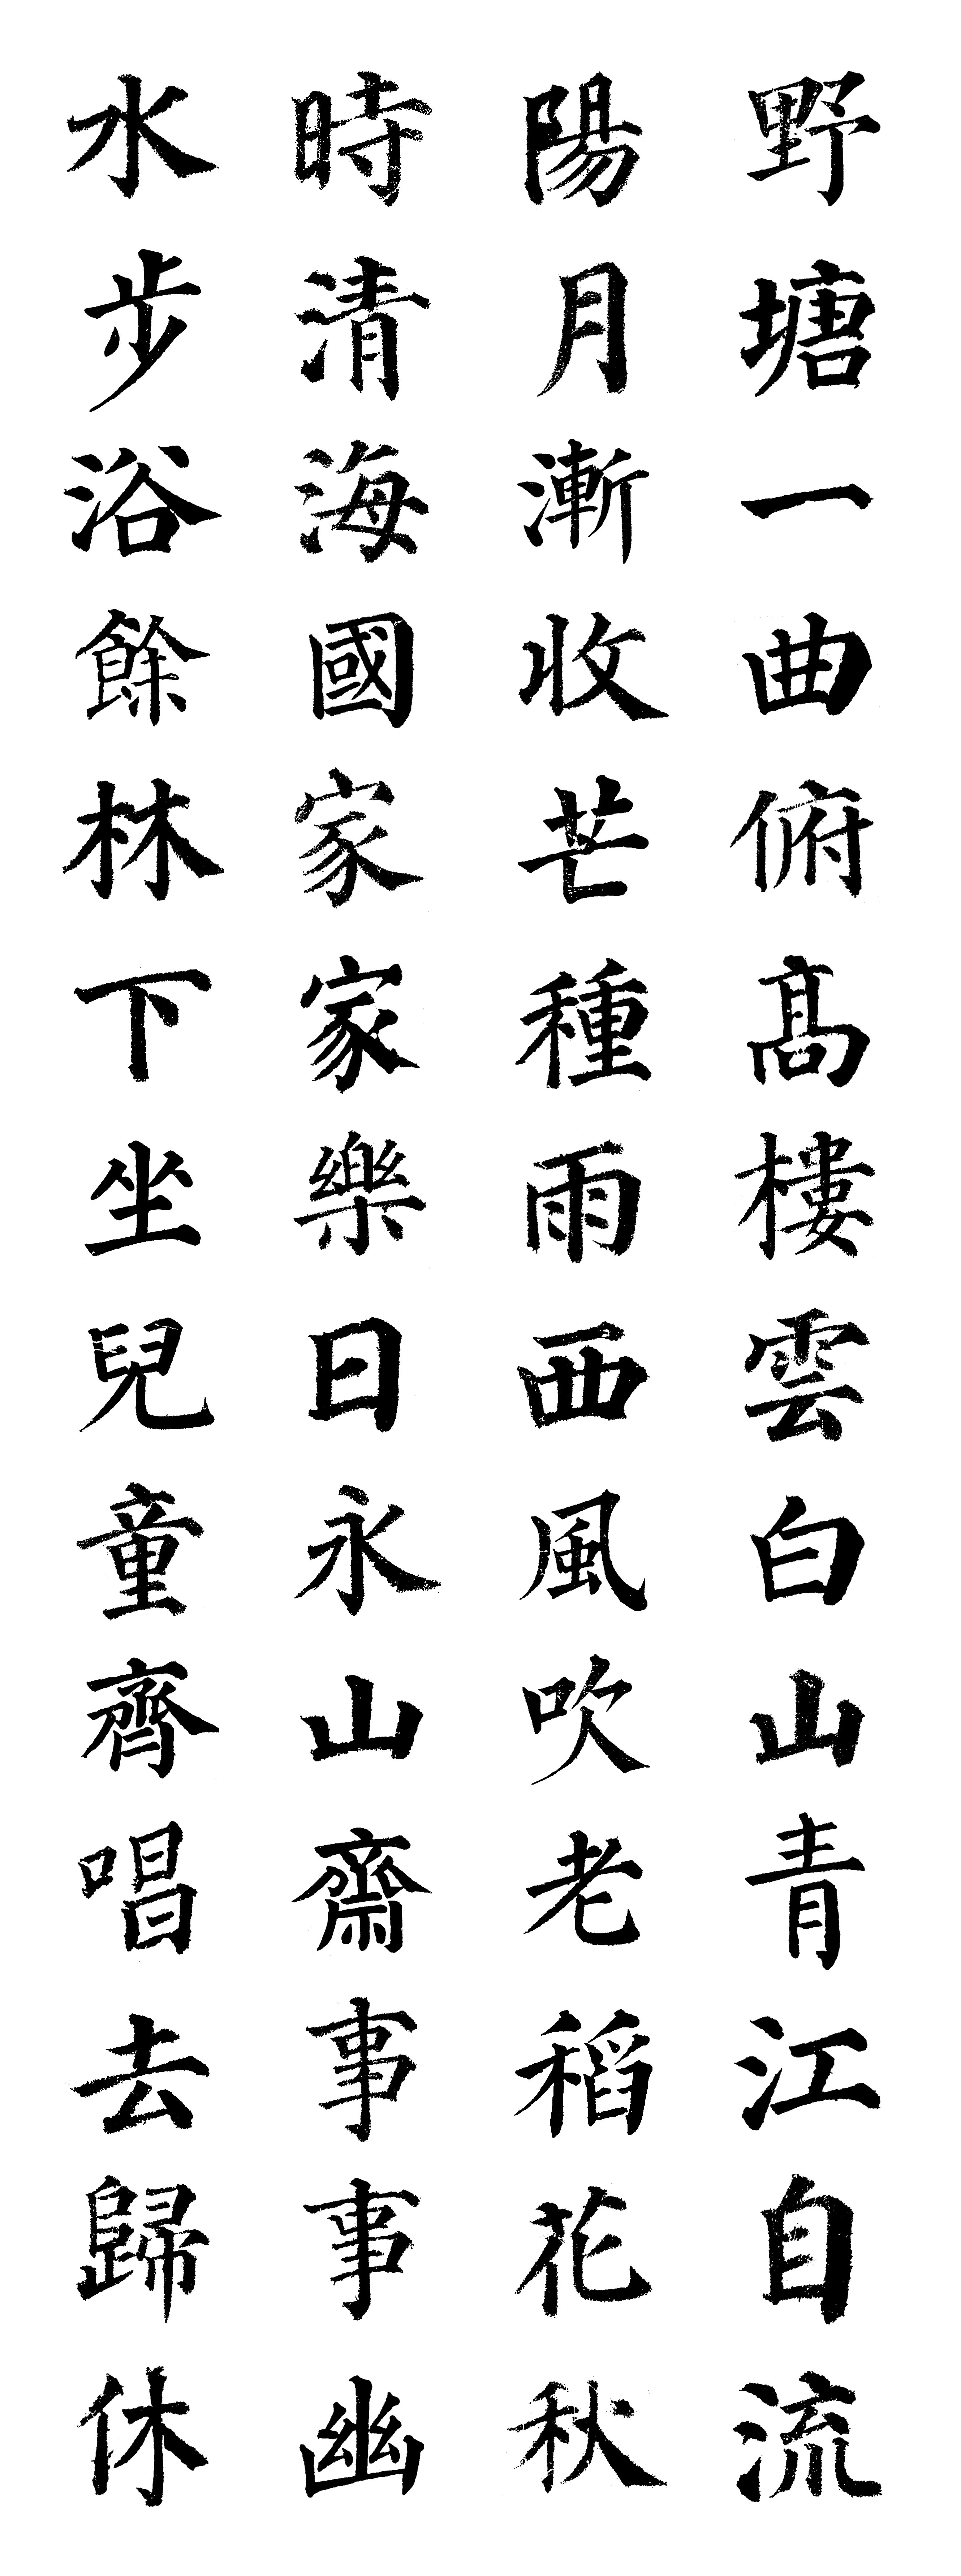 野塘一曲俯髙樓雲白山青江自流
陽月漸收芒種雨西風吹老稻花秋
時清海國家家樂日永山齋事事幽
水步浴餘林下坐兒童齊唱去歸休